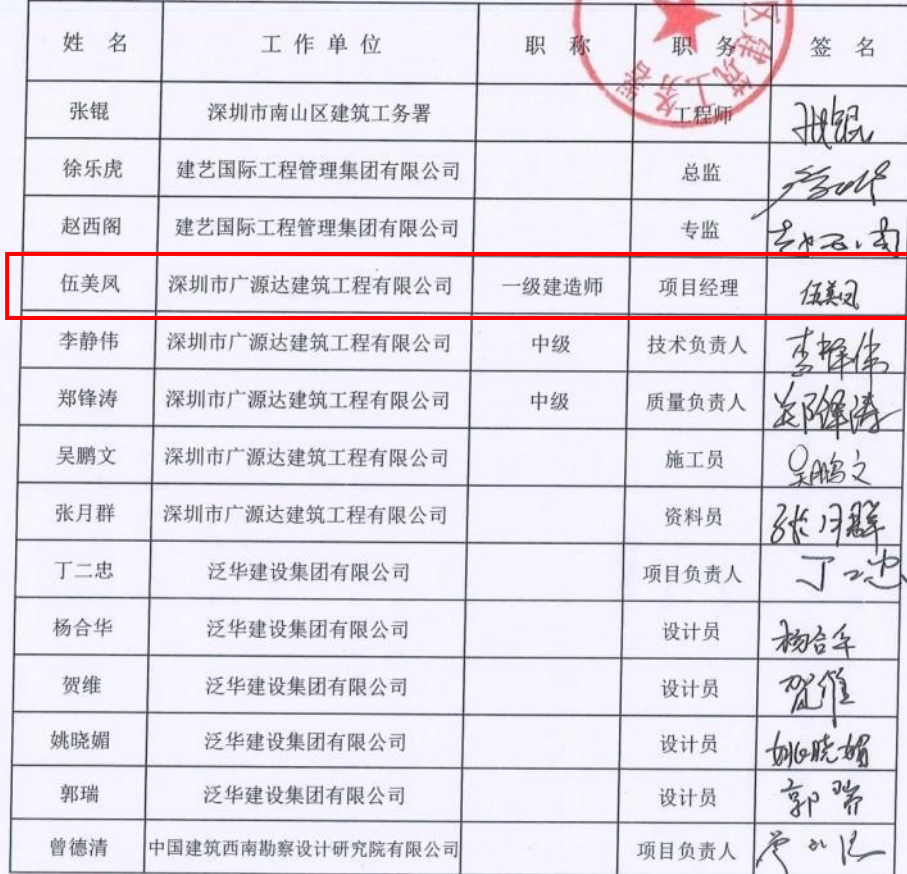 姓 名 工作单位 职 称 职 务 签 名
张锟 深圳市南山区建筑工务署 工程师 张锟
徐乐虎 建艺国际工程管理集团有限公司 总监
赵西阁 建艺国际工程管理集团有限公司 专监
伍美凤 深圳市广源达建筑工程有限公司 一级建造师 项目经理 伍美凤
李静伟 深圳市广源达建筑工程有限公司 中级 技术负责人 李静伟
郑锋涛 深圳市广源达建筑工程有限公司 中级 质量负责人 郑锋涛
吴鹏文 深圳市广源达建筑工程有限公司 施工员 吴鹏文
张月群 深圳市广源达建筑工程有限公司 资料员 张月群
丁二忠 泛华建设集团有限公司 项目负责人 丁二忠
杨合华 泛华建设集团有限公司 设计员 杨合华
贺维 泛华建设集团有限公司 设计员 贺维
姚晓媚 泛华建设集团有限公司 设计员 姚晓媚
郭瑞 泛华建设集团有限公司 设计员 郭瑞
曾德清 中国建筑西南勘察设计研究院有限公司 项目负责人
区建筑工务署